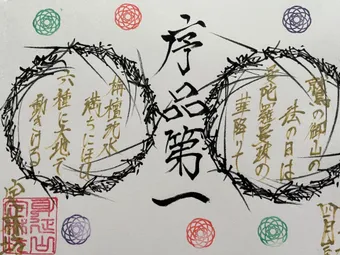 鷲の御山の
春の日は
曼陀羅曼珠の
華降りて
序品第一
栴檀香水
満ちにほひ
六種に大地で
動きける
身延山